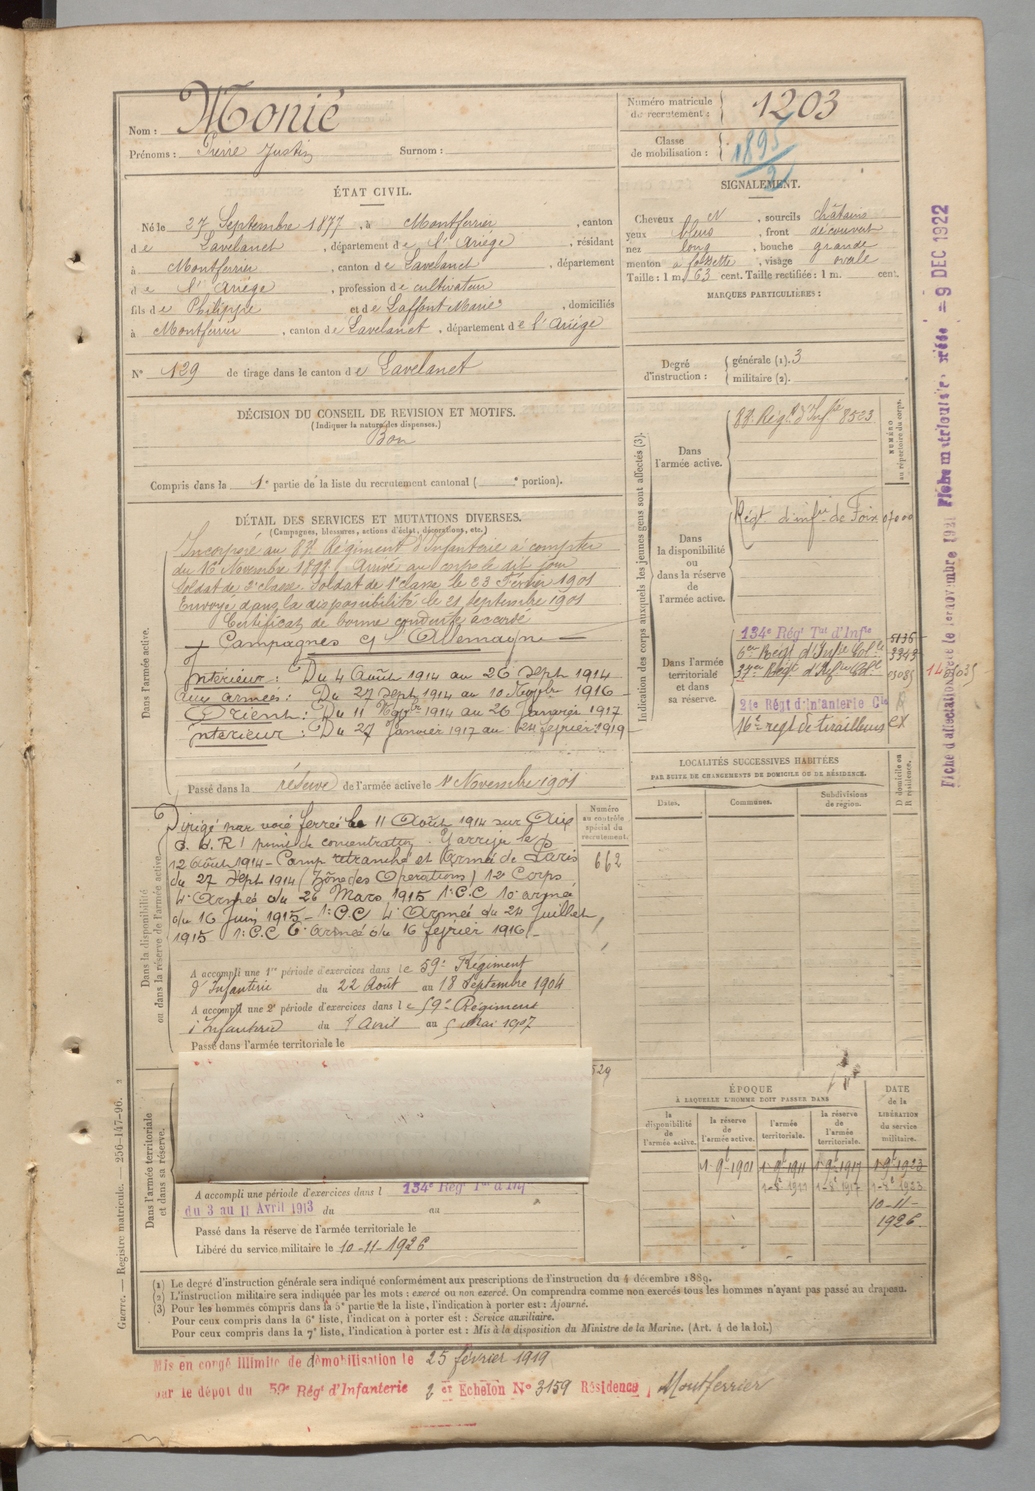 Nom : Monié
Prénoms : Pierre Justin Surnom :
Numéro matricule du recrutement : 1203
Classe de mobilisation : 1895/2
ÉTAT CIVIL.
Né le 27 Septembre 1877, à Montferrier, canton
de Lavelanet, département de l'Ariège, résidant
à Montferrier, canton de Lavelanet, département
de l'Ariège, profession de cultivateur
fils de Philippe et de Laffont Marie, domiciliés
à Montferrier, canton de Lavelanet, département de l'Ariége
N° 129 de tirage dans le canton de Lavelanet
SIGNALEMENT.
Cheveux N, sourcils châtains
yeux bleus, front découvert
nez long, bouche grande
menton à fossette, visage ovale
Taille : 1 m. 63 cent. Taille rectifiée : 1 m. cent.
MARQUES PARTICULIÈRES :
Degré d'instruction : générale (1). 3
militaire (2).
DÉCISION DU CONSEIL DE REVISION ET MOTIFS.
(Indiquer la nature des dispenses.)
Bon
Compris dans la 1e partie de la liste du recrutement cantonal ( e portion).
DÉTAIL DES SERVICES ET MUTATIONS DIVERSES.
(Campagnes, blessures, actions d'éclat, décorations, etc.)
Dans l'armée active.
Incorporé au Régiment d'Infanterie à compter
du 16 Novembre 1898. Arrivé au corps le dit jour
Soldat de 2e classe. Soldat de 1e classe le 23 Février 1901
Envoyé dans la disponibilité le 21 septembre 1901
Certificat de bonne conduite accordé
Campagnes c/ l'Allemagne
Intérieur : Du 4 Août 1914 au 26 Sept 1914
aux armées : Du 27 Sept 1914 au 10 Novbr 1916
Orient : Du 11 Novbr 1914 au 26 Janvier 1917
Intérieur : Du 27 Janvier 1917 au 24 février 1919
Passé dans la réserve de l'armée active le 1er Novembre 1901
Dans la disponibilité ou dans la réserve de l'armée active.
Dirigé par voie ferrée le 11 Août 1914 sur
point de concentration. Y arrive le
12 Août 1914 - Camp retranché et Armée de Paris
du 27 Sept 1914 (Zône des Opérations) 12e Corps
4e Armée du 26 Mars 1915 1e C.C 10e armée
du 16 Juin 1915 - 1e C.C 4e Armée du 24 Juillet
1915 1e C.C 6e armée du 16 février 1916
Numéro au contrôle spécial du recrutement.
662
A accompli une 1re période d'exercices dans le 59e Régiment
d'Infanterie du 22 Août au 18 Septembre 1904
A accompli une 2e période d'exercices dans le 59e Régiment
d'Infanterie du 8 Avril au 5 Mai 1907
Passé dans l'armée territoriale le
529
Dans l'armée territoriale et dans sa réserve.
A accompli une période d'exercices dans l 134e Rég Ter d'Inf
du 3 au 11 Avril 1913 du au
Passé dans la réserve de l'armée territoriale le
Libéré du service militaire le 10-11-1926
Indication des corps auxquels les jeunes gens sont affectés (3).
NUMÉRO au répertoire du corps.
Dans l'armée active.
Régt d'Infie 8523
Dans la disponibilité ou dans la réserve de l'armée active.
Régt d'infie de Foix 07000
Dans l'armée territoriale et dans sa réserve.
134e Rég Tal d'Infie 5136
6e Régt d'Infie Colle 3343
37e Régt d'Infie Colle
21e Régt d'Infanterie Cle
16e regt de tirailleurs
LOCALITÉS SUCCESSIVES HABITÉES
PAR SUITE DE CHANGEMENTS DE DOMICILE OU DE RÉSIDENCE.
Dates. Communes. Subdivisions de région.
D domicile ou R résidence.
ÉPOQUE
À LAQUELLE L'HOMME DOIT PASSER DANS
la disponibilité de l'armée active. la réserve de l'armée active. l'armée territoriale. la réserve de l'armée territoriale.
DATE de la LIBÉRATION du service militaire.
1-9b-1901 1-9b-1911 1-9b-1917 1-9b-1923
10-11-1926
(1) Le degré d'instruction générale sera indiqué conformément aux prescriptions de l'instruction du 4 décembre 1889.
(2) L'instruction militaire sera indiquée par les mots : exercé ou non exercé. On comprendra comme non exercés tous les hommes n'ayant pas passé au drapeau.
(3) Pour les hommes compris dans la 5e partie de la liste, l'indication à porter est : Ajourné.
Pour ceux compris dans la 6e liste, l'indication à porter est : Service auxiliaire.
Pour ceux compris dans la 7e liste, l'indication à porter est : Mis à la disposition du Ministre de la Marine. (Art. 4 de la loi.)
Mis en congé illimité de démobilisation le 25 février 1919
par le dépôt du 59e Régt d'Infanterie 2 er Echelon N° 3159 Résidence, Montferrier
Guerre. — Registre matricule. — 256-147-96.
9 DEC 1922